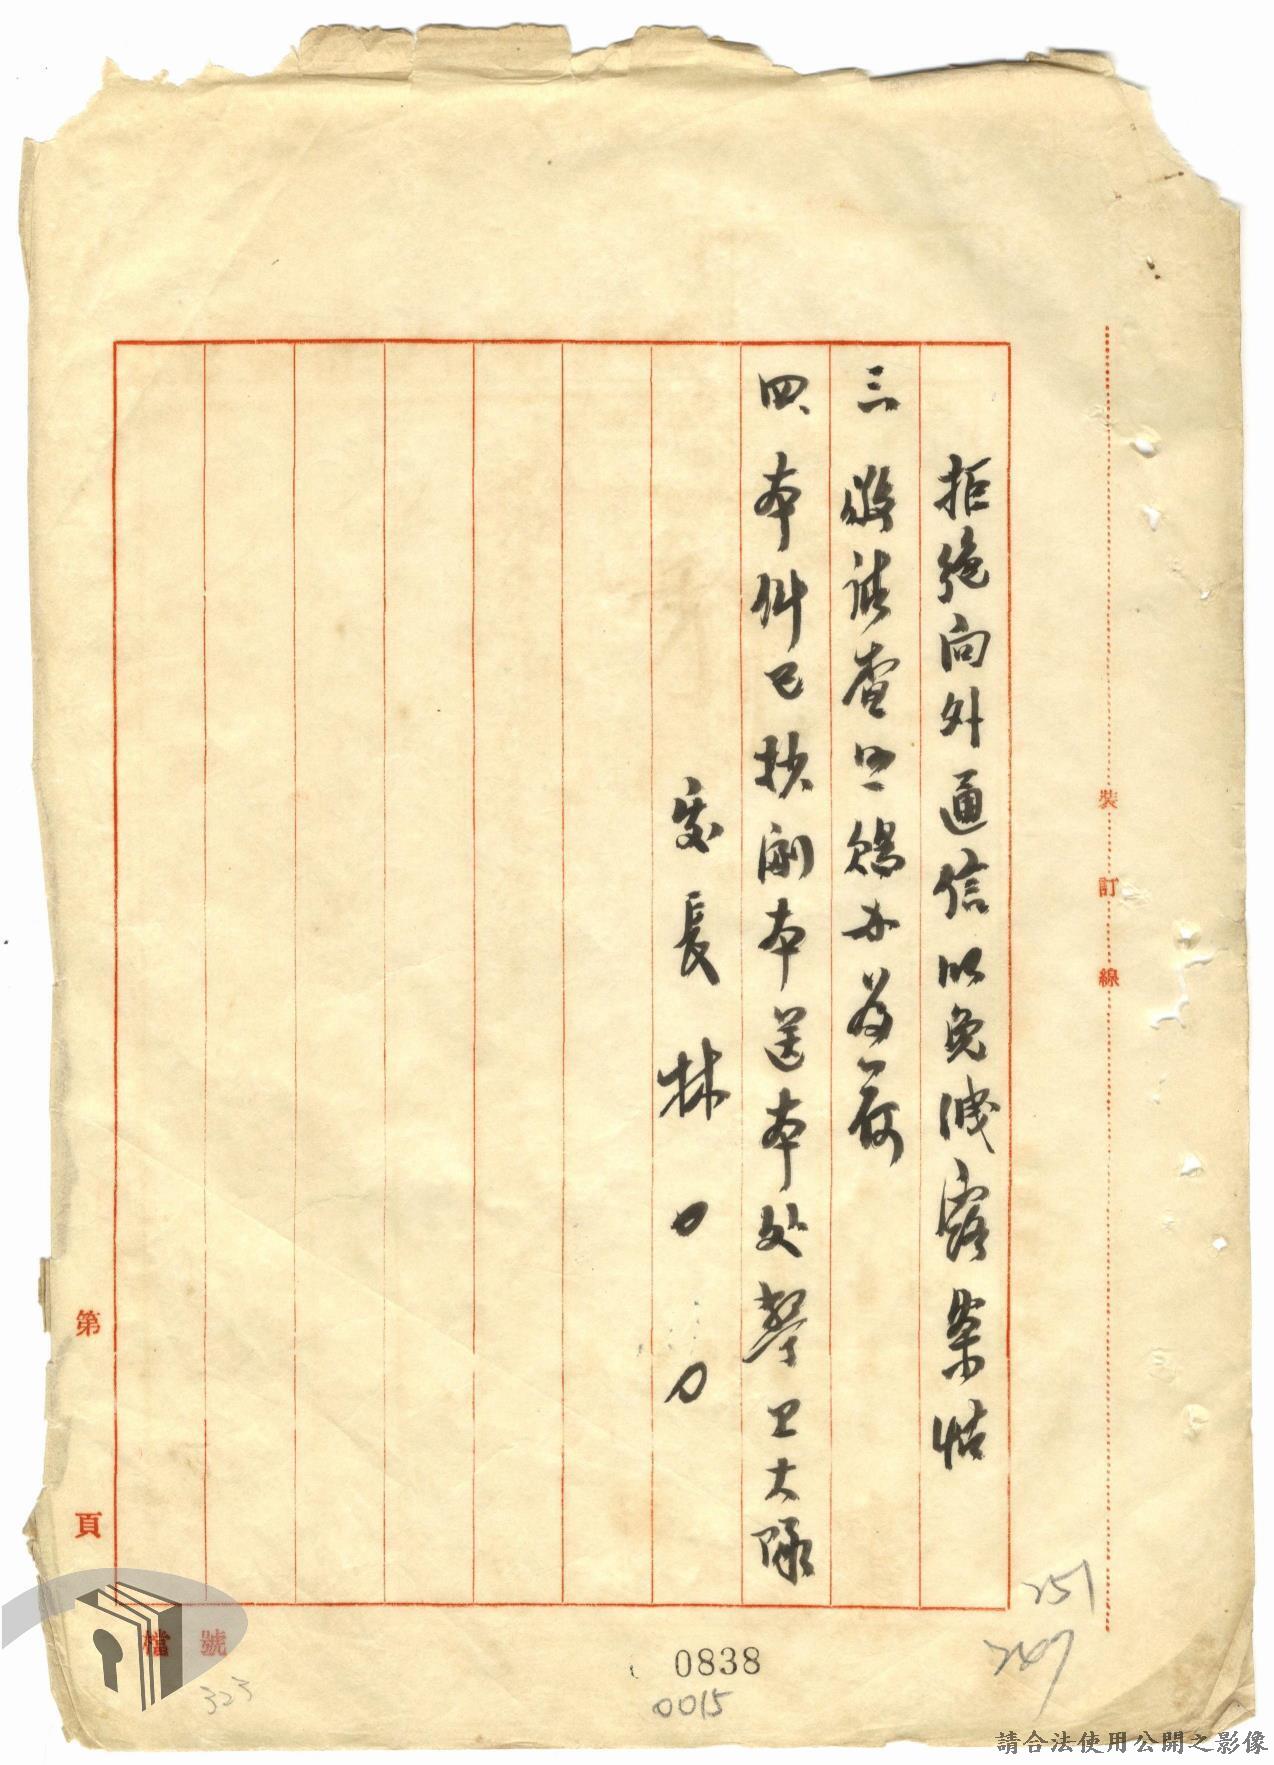 拒絕向外通信以免洩露案情
三、敬請查照賜办為荷
四、本件已抄副本送本处警卫大隊
處長林○○
裝
訂
線
第
頁
檔號
323
0838
0015
251
247
請合法使用公開之影像